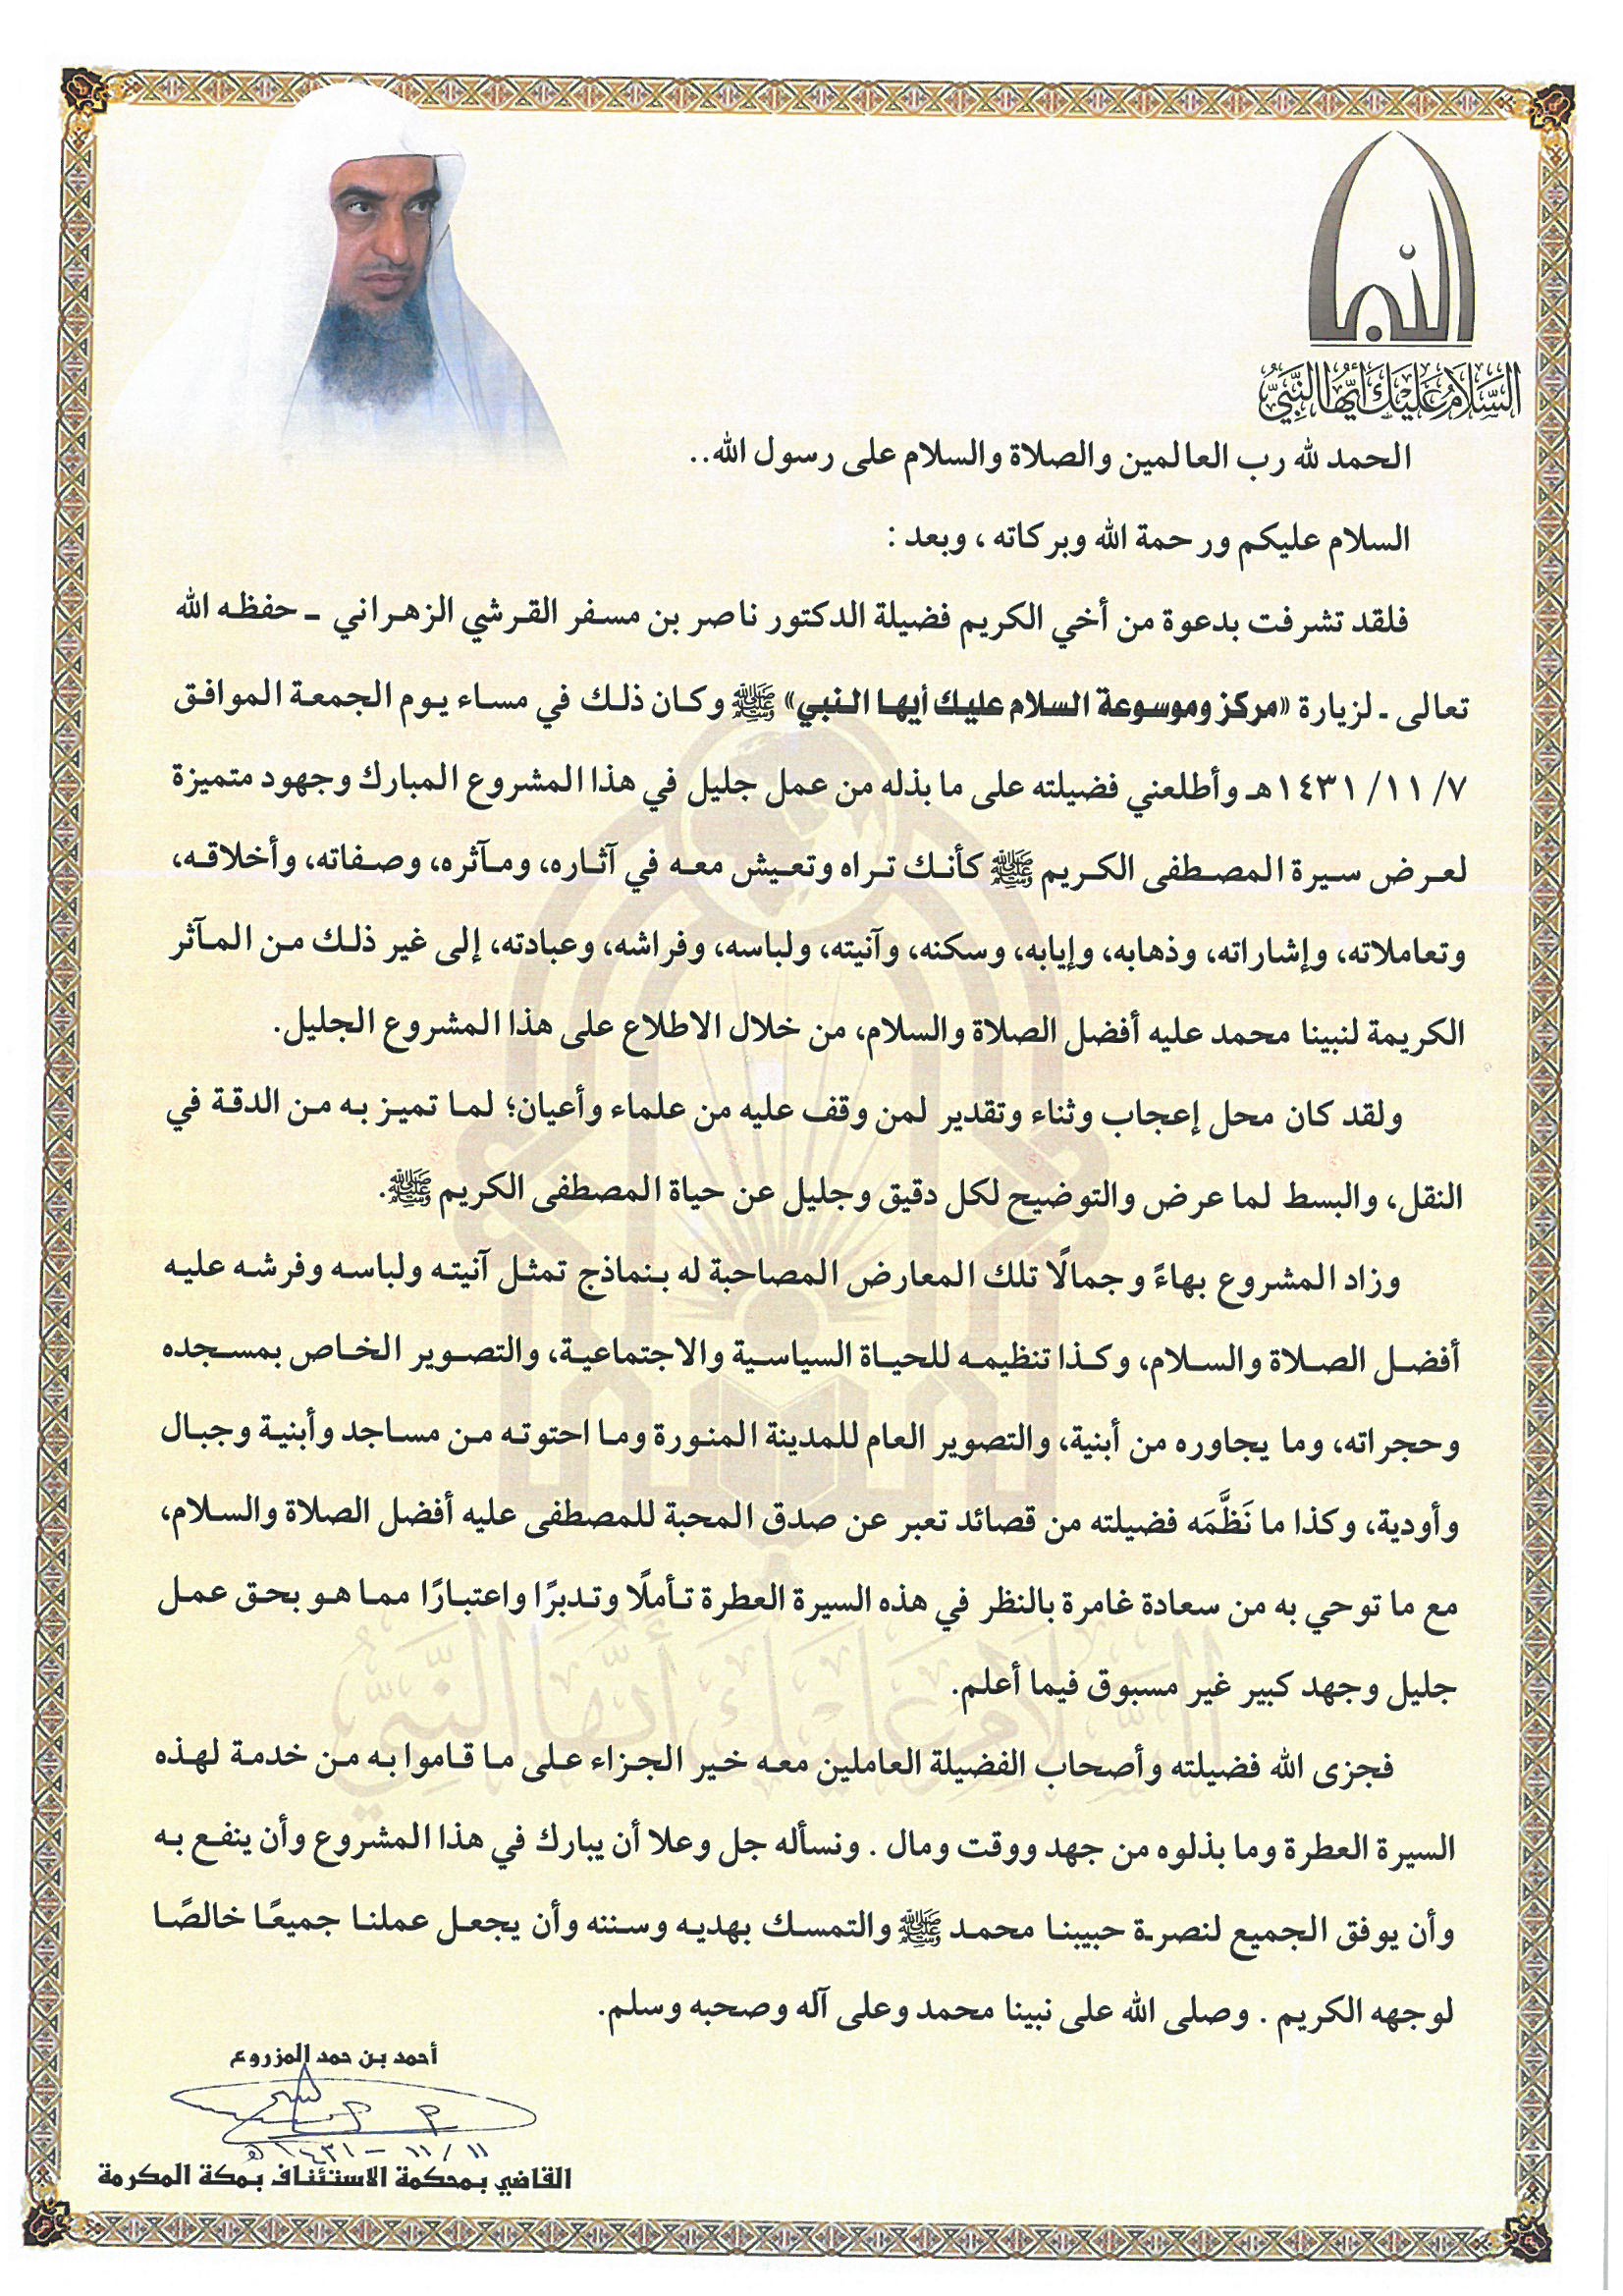 النبي
السلام عليك أيها النبي
الحمد لله رب العالمين والصلاة والسلام على رسول الله..
السلام عليكم ورحمة الله وبركاته ، وبعد :
فلقد تشرفت بدعوة من أخي الكريم فضيلة الدكتور ناصر بن مسفر القرشي الزهراني ـ حفظه الله
تعالى ـ لزيارة «مركز وموسوعة السلام عليك أيها النبي» ﷺ وكان ذلك في مساء يوم الجمعة الموافق
٧/ ١١/ ١٤٣١هـ وأطلعني فضيلته على ما بذله من عمل جليل في هذا المشروع المبارك وجهود متميزة
لعرض سيرة المصطفى الكريم ﷺ كأنك تراه وتعيش معه في آثاره، ومآثره، وصفاته، وأخلاقه،
وتعاملاته، وإشاراته، وذهابه، وإيابه، وسكنه، وآنيته، ولباسه، وفراشه، وعبادته، إلى غير ذلك من المآثر
الكريمة لنبينا محمد عليه أفضل الصلاة والسلام، من خلال الاطلاع على هذا المشروع الجليل.
ولقد كان محل إعجاب وثناء وتقدير لمن وقف عليه من علماء وأعيان؛ لما تميز به من الدقة في
النقل، والبسط لما عرض والتوضيح لكل دقيق وجليل عن حياة المصطفى الكريم ﷺ.
وزاد المشروع بهاءً وجمالًا تلك المعارض المصاحبة له بنماذج تمثل آنيته ولباسه وفرشه عليه
أفضل الصلاة والسلام، وكذا تنظيمه للحياة السياسية والاجتماعية، والتصوير الخاص بمسجده
وحجراته، وما يجاوره من أبنية، والتصوير العام للمدينة المنورة وما احتوته من مساجد وأبنية وجبال
وأودية، وكذا ما نَظَّمَه فضيلته من قصائد تعبر عن صدق المحبة للمصطفى عليه أفضل الصلاة والسلام،
مع ما توحي به من سعادة غامرة بالنظر في هذه السيرة العطرة تأملًا وتدبرًا واعتبارًا مما هو بحق عمل
جليل وجهد كبير غير مسبوق فيما أعلم.
فجزى الله فضيلته وأصحاب الفضيلة العاملين معه خير الجزاء على ما قاموا به من خدمة لهذه
السيرة العطرة وما بذلوه من جهد ووقت ومال . ونسأله جل وعلا أن يبارك في هذا المشروع وأن ينفع به
وأن يوفق الجميع لنصرة حبيبنا محمد ﷺ والتمسك بهديه وسننه وأن يجعل عملنا جميعًا خالصًا
لوجهه الكريم . وصلى الله على نبينا محمد وعلى آله وصحبه وسلم.
أحمد بن حمد المزروع
١١/ ١١ - ١٤٣١هـ
القاضي بمحكمة الاستئناف بمكة المكرمة